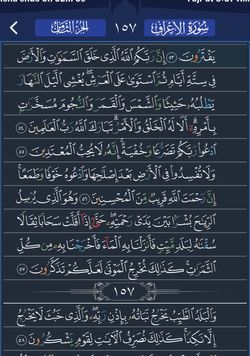 سُورَةُ الْأَعْرَافِ ١٥٧ الجُزْءُ الثَّامِنُ
يَفْتَرُونَ ۝٥٣ إِنَّ رَبَّكُمُ اللَّهُ الَّذِي خَلَقَ السَّمَٰوَٰتِ وَالْأَرْضَ
فِي سِتَّةِ أَيَّامٍ ثُمَّ اسْتَوَىٰ عَلَى الْعَرْشِ يُغْشِي الَّيْلَ النَّهَارَ
يَطْلُبُهُ حَثِيثًا وَالشَّمْسَ وَالْقَمَرَ وَالنُّجُومَ مُسَخَّرَٰتٍ
بِأَمْرِهِ أَلَا لَهُ الْخَلْقُ وَالْأَمْرُ تَبَارَكَ اللَّهُ رَبُّ الْعَٰلَمِينَ ۝٥٤
ادْعُوا رَبَّكُمْ تَضَرُّعًا وَخُفْيَةً إِنَّهُ لَا يُحِبُّ الْمُعْتَدِينَ ۝٥٥
وَلَا تُفْسِدُوا فِي الْأَرْضِ بَعْدَ إِصْلَٰحِهَا وَادْعُوهُ خَوْفًا وَطَمَعًا
إِنَّ رَحْمَتَ اللَّهِ قَرِيبٌ مِّنَ الْمُحْسِنِينَ ۝٥٦ وَهُوَ الَّذِي يُرْسِلُ
الرِّيَٰحَ بُشْرًا بَيْنَ يَدَيْ رَحْمَتِهِ حَتَّىٰ إِذَا أَقَلَّتْ سَحَابًا ثِقَالًا
سُقْنَٰهُ لِبَلَدٍ مَّيِّتٍ فَأَنزَلْنَا بِهِ الْمَاءَ فَأَخْرَجْنَا بِهِ مِن كُلِّ
الثَّمَرَٰتِ كَذَٰلِكَ نُخْرِجُ الْمَوْتَىٰ لَعَلَّكُمْ تَذَكَّرُونَ ۝٥٧
١٥٧
وَالْبَلَدُ الطَّيِّبُ يَخْرُجُ نَبَاتُهُ بِإِذْنِ رَبِّهِ وَالَّذِي خَبُثَ لَا يَخْرُجُ
إِلَّا نَكِدًا كَذَٰلِكَ نُصَرِّفُ الْآيَٰتِ لِقَوْمٍ يَشْكُرُونَ ۝٥٨